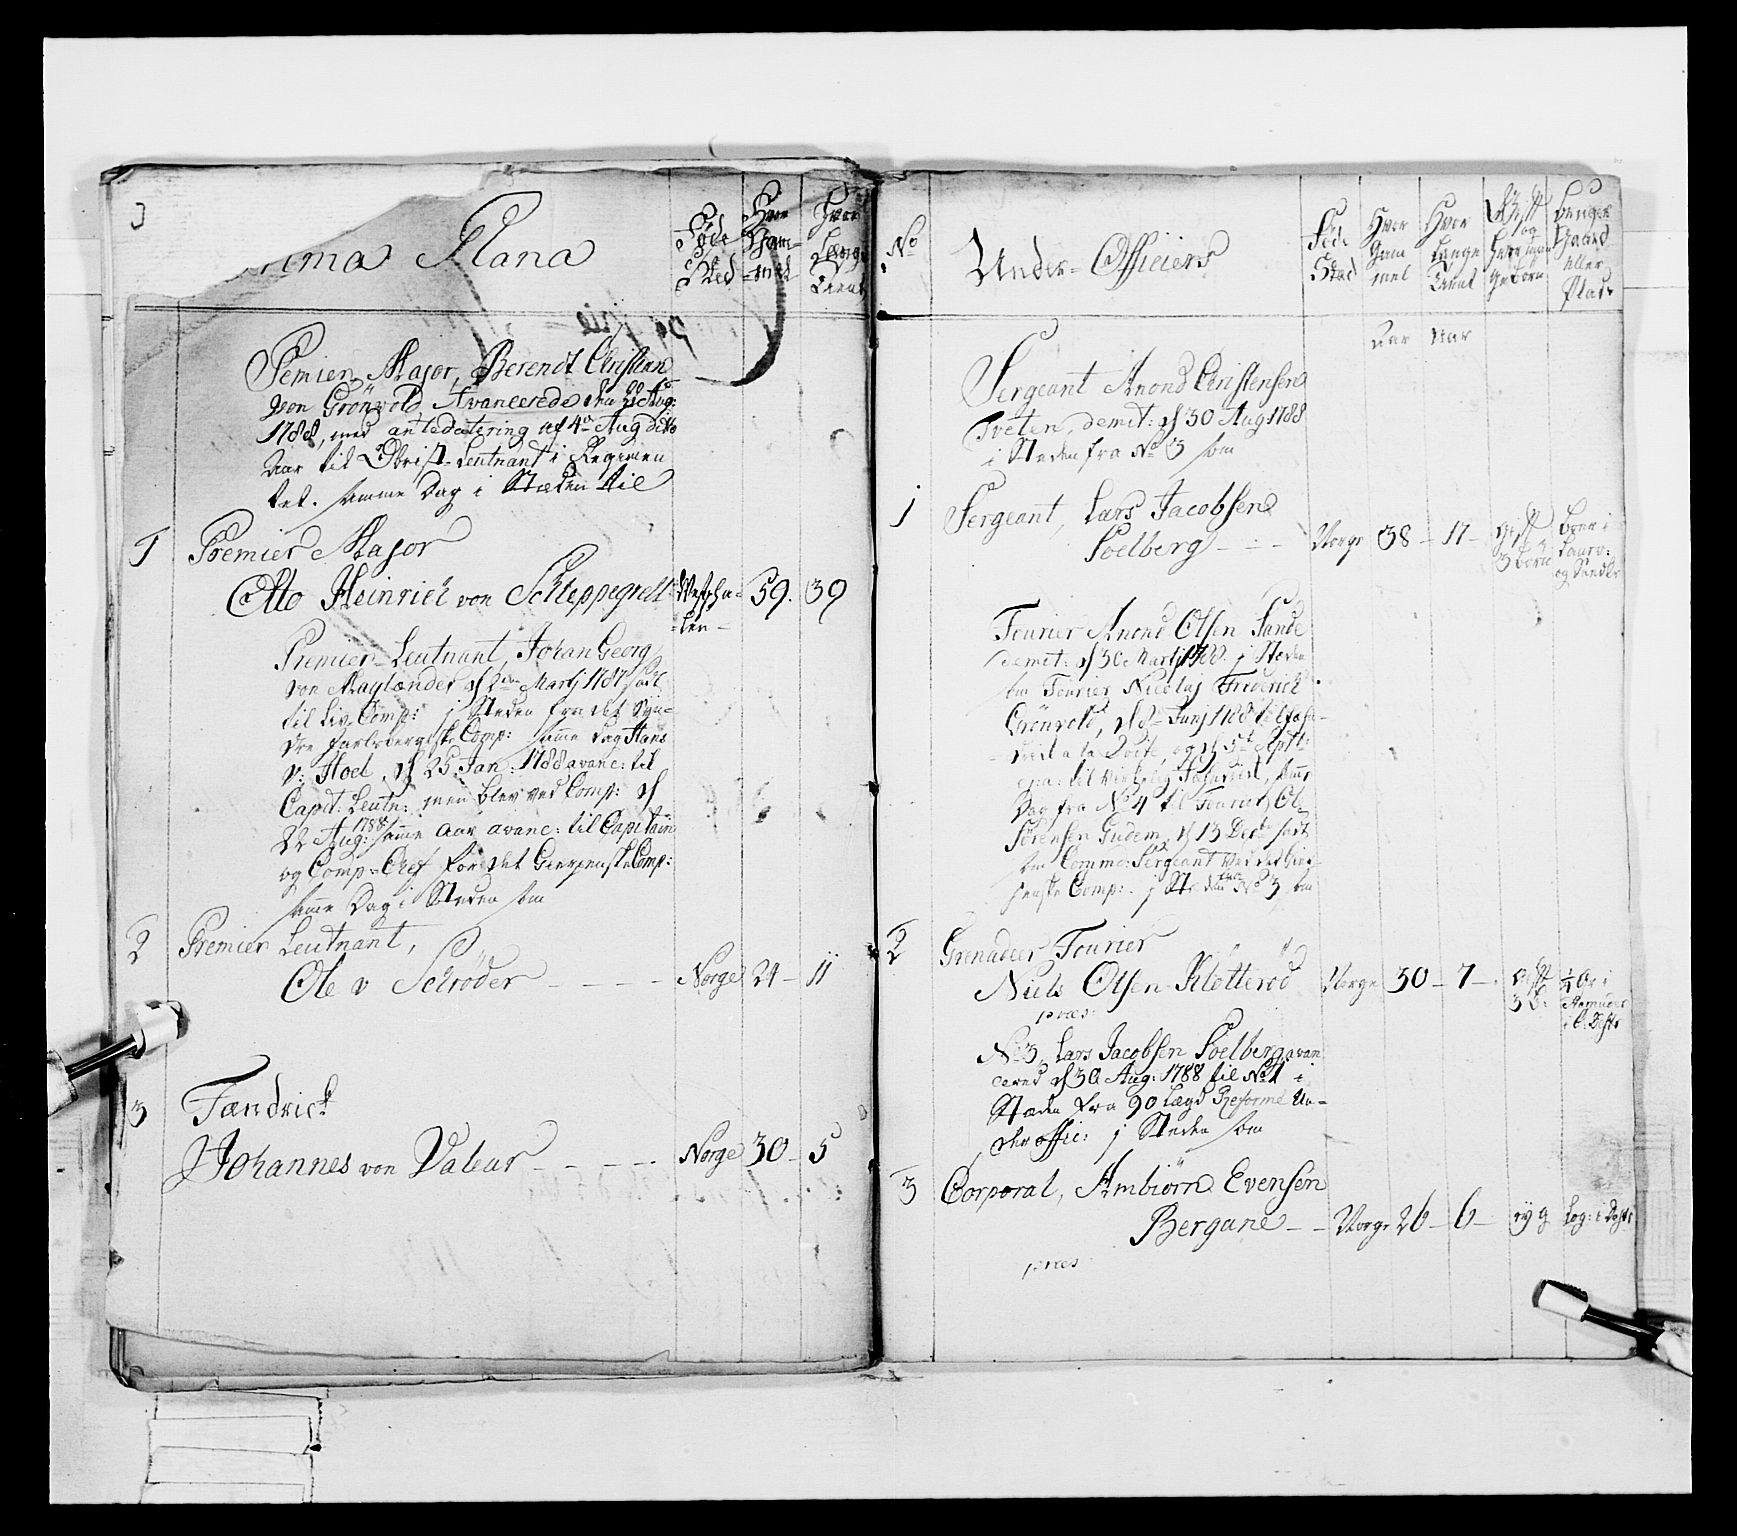 ima Plana
Føde Sted
Hvor Gam=mel
Hvor Længe Tient
Premier Major, Berendt Christian
von Grönvold Avancerede den 22 Aug:
1788, med antedatering af 4de Aug ditto
Aar til Obrist-Leutnant i Regimen
tet. samme Dag i Stæden til
1 Premier Major
Otto Heinrich von Schleppegrell Westpha=len - 59. 39
Premier Leutnant, Johan Georg
von Maylænder d 2den Martj 1787 sadt
til Liv-Comp: j Steden fra det Syn-
dre Jarlsbergiske Comp: samme dag Hans
v: Hoel, d 25 Jan: 1788 avanc: til
Capit: Leutn: men blev ved Comp: d
22 Aug: 1788 samme Aar avanc: til Capitain
og Comp-Chef for det Gierpenske Comp:
samme Dag i Steden som
2 Premier Leutnant,
Ole v Schrøder - - - - Norge 24 - 11
3 Fændrich
Johannes von Valeur - - - - Norge 30 - 5
No
Under-Officiers
Føde Sted
Hvor Gam mel
Hvor Længe Tient
Gift og Hvor mange Børn
Beneger Gaard eller Plads
Aar Aar
Sergeant Anond Christensen
Tveten, demit: d 30 Aug 1788
i Steden fra No 3 som
1 Sergeant, Lars Jacobsen
Soelberg - - - Norge 38 - 17 - gift 3 børn Boer i Laurv: og Sander
Fourier Anond Olsen Sande
demit: d 30 Martj 1788. j Steden
som Fourier Nicolay Frederich
Grönvold, d 8 Junj 1788
Dag fra No 4 til Fourier, Ole
Sörensen Gudem, d 13 Decbr sadt
som Comme: Sergeant ved det Gier-
penske Comp: j Steden fra No 3 som
2 Grenadeer Fourier
Niels Olsen Klötteröd Norge 30 - 7 - Gift 3 B: 1/4 Gr i
præs:
No 3, Lars Jacobsen Soelberg avan
cered d 30 Aug: 1788 til No 1 i
Stæden fra 90 Lægd Reforme Un-
der offic: j Steden som
3 Corporal, Ambiörn Evensen
Bergane - - Norge 26 - 6 - og: Log: i Dist:
præs